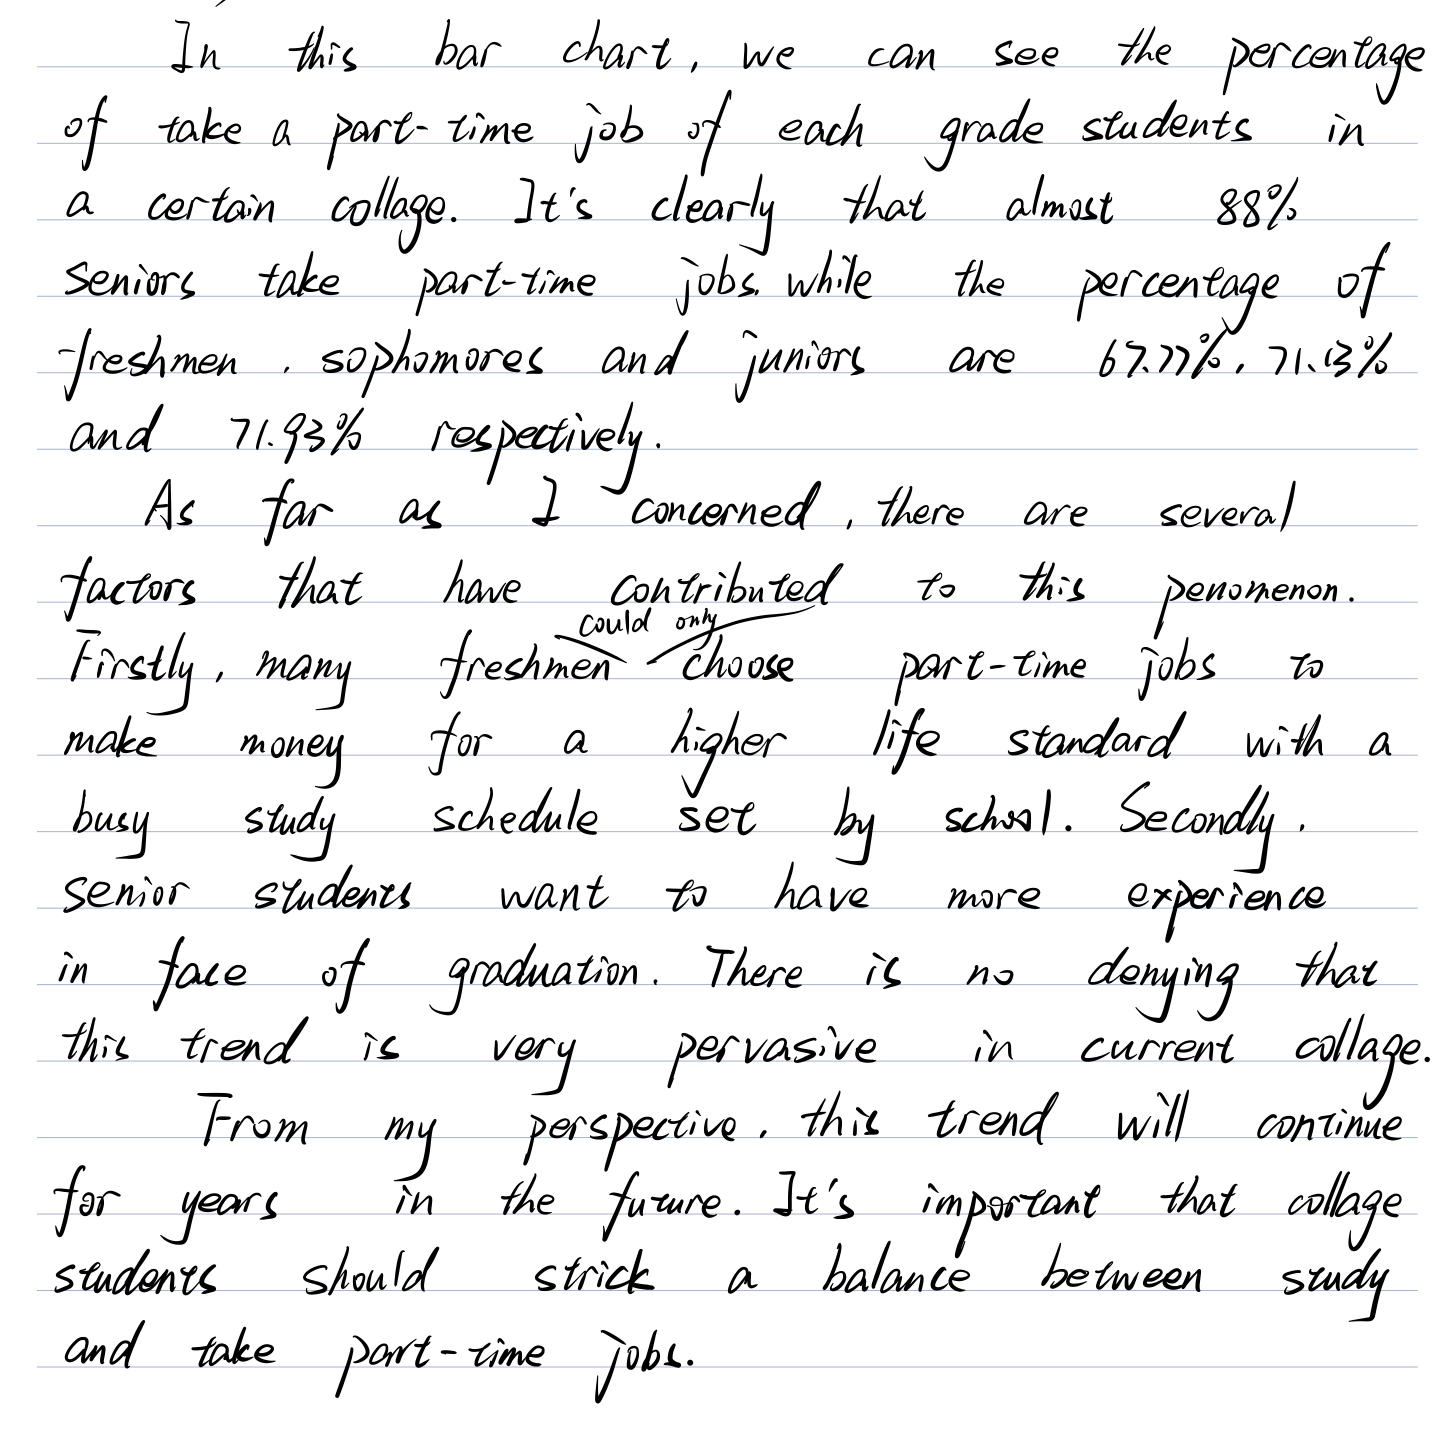 In this bar chart, we can see the percentage
of take a part-time job of each grade students in
a certain collage. It's clearly that almost 88%
seniors take part-time jobs. while the percentage of
freshmen, sophomores and juniors are 67.77%, 71.13%
and 71.93% respectively.
As far as I concerned, there are several
factors that have contributed to this penomenon.
could only
Firstly, many freshmen choose part-time jobs to
make money for a higher life standard with a
busy study schedule set by school. Secondly,
senior students want to have more experience
in face of graduation. There is no denying that
this trend is very pervasive in current collage.
From my perspective, this trend will continue
for years in the future. It's important that collage
students should strick a balance between study
and take part-time jobs.